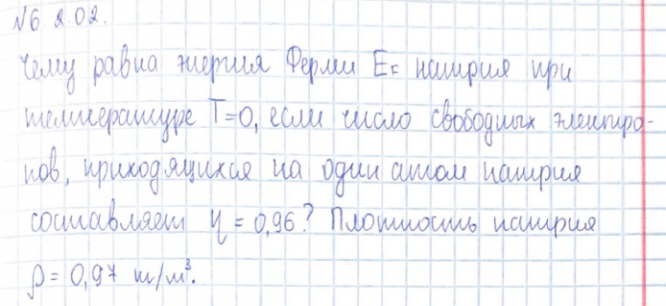 №6 2.02.
Чему равна энергия Ферми E_F натрия при
температуре T=0, если число свободных электро-
нов, приходящихся на один атом натрия
составляет η = 0,96? Плотность натрия
ρ = 0,97 т/м³.